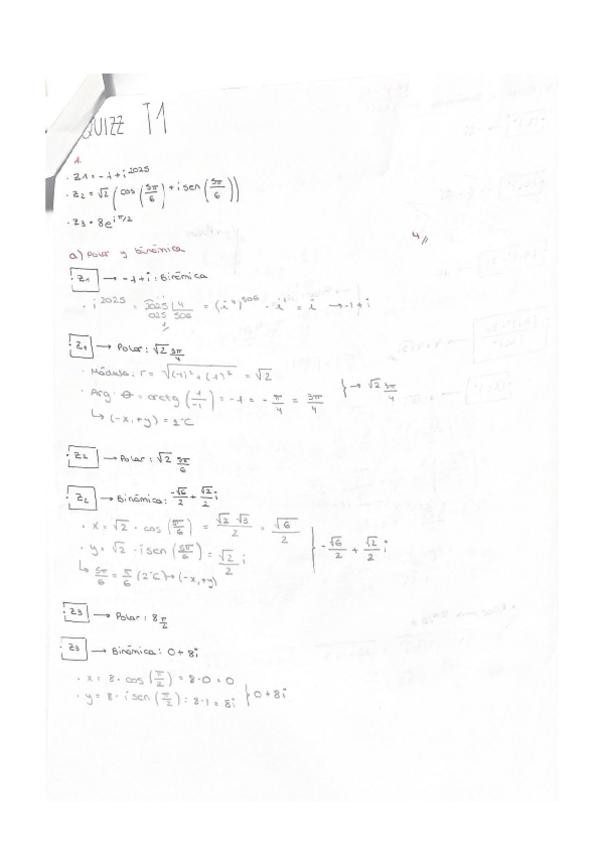 QUIZZ T1
1.
· z1 = -1 + i^2025
· z2 = √2 (cos (5π/6) + i sen (5π/6))
· z3 = 8e^iπ/2
4//
a) Polar y binómica
z1 → -1 + i : Binómica
· i^2025 = 2025 | 4 = (i^4)^506 · i^1 = i → -1 + i
025 506
1
z1 → Polar : √2 3π/4
· Módulo : r = √((-1)² + (1)²) = √2
· Arg · θ = arctg (1/-1) = -1 = -π/4 = 3π/4 } → √2 3π/4
↳ (-x, +y) = 2ºC
z2 → Polar : √2 5π/6
z2 → Binómica : -√6/2 + √2/2 i
· x = √2 · cos (5π/6) = √2 √3/2 = √6/2
· y = √2 · i sen (5π/6) = √2/2 i } -√6/2 + √2/2 i
↳ 5π/6 = 5/6 (2ºC) → (-x, +y)
z3 → Polar : 8 π/2
z3 → Binómica : 0 + 8i
· x = 8 · cos (π/2) = 8 · 0 = 0
· y = 8 · i sen (π/2) = 8 · 1 = 8i } 0 + 8i